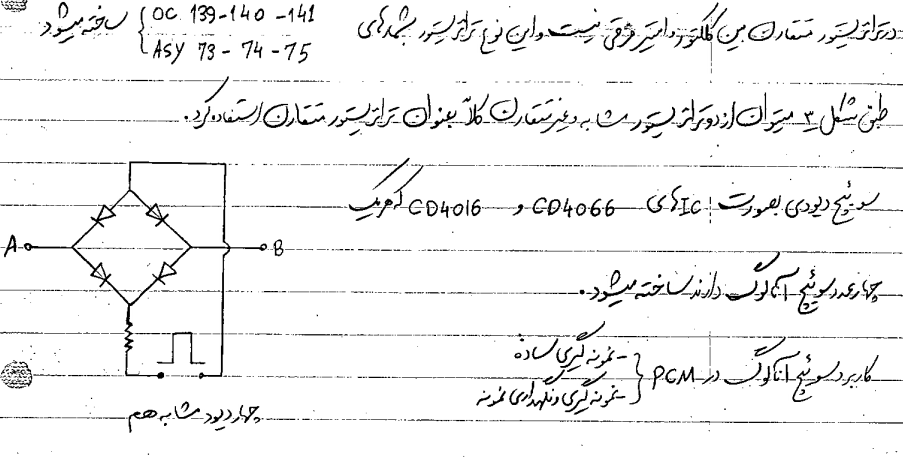 در ترانزیستور متقارن بین کلکتور و امیتر فرقی نیست و این نوع ترانزیستور بشمارهای { OC 139-140-141
ASY 73-74-75 } ساخته میشود
طبق شکل ۳ میتوان از دو ترانزیستور مشابه و غیر متقارن کلاً بعنوان ترانزیستور متقارن استفاده کرد.
سوئیچ دیودی بصورت IC های CD4066 و CD4016 که هریک
چهار عدد سوئیچ آنالوگ دارند ساخته میشود.
کاربرد سوئیچ آنالوگ در PCM { - نمونه گیری ساده
- نمونه گیری و نگهداری نمونه
A
B
چهار دیود مشابه هم